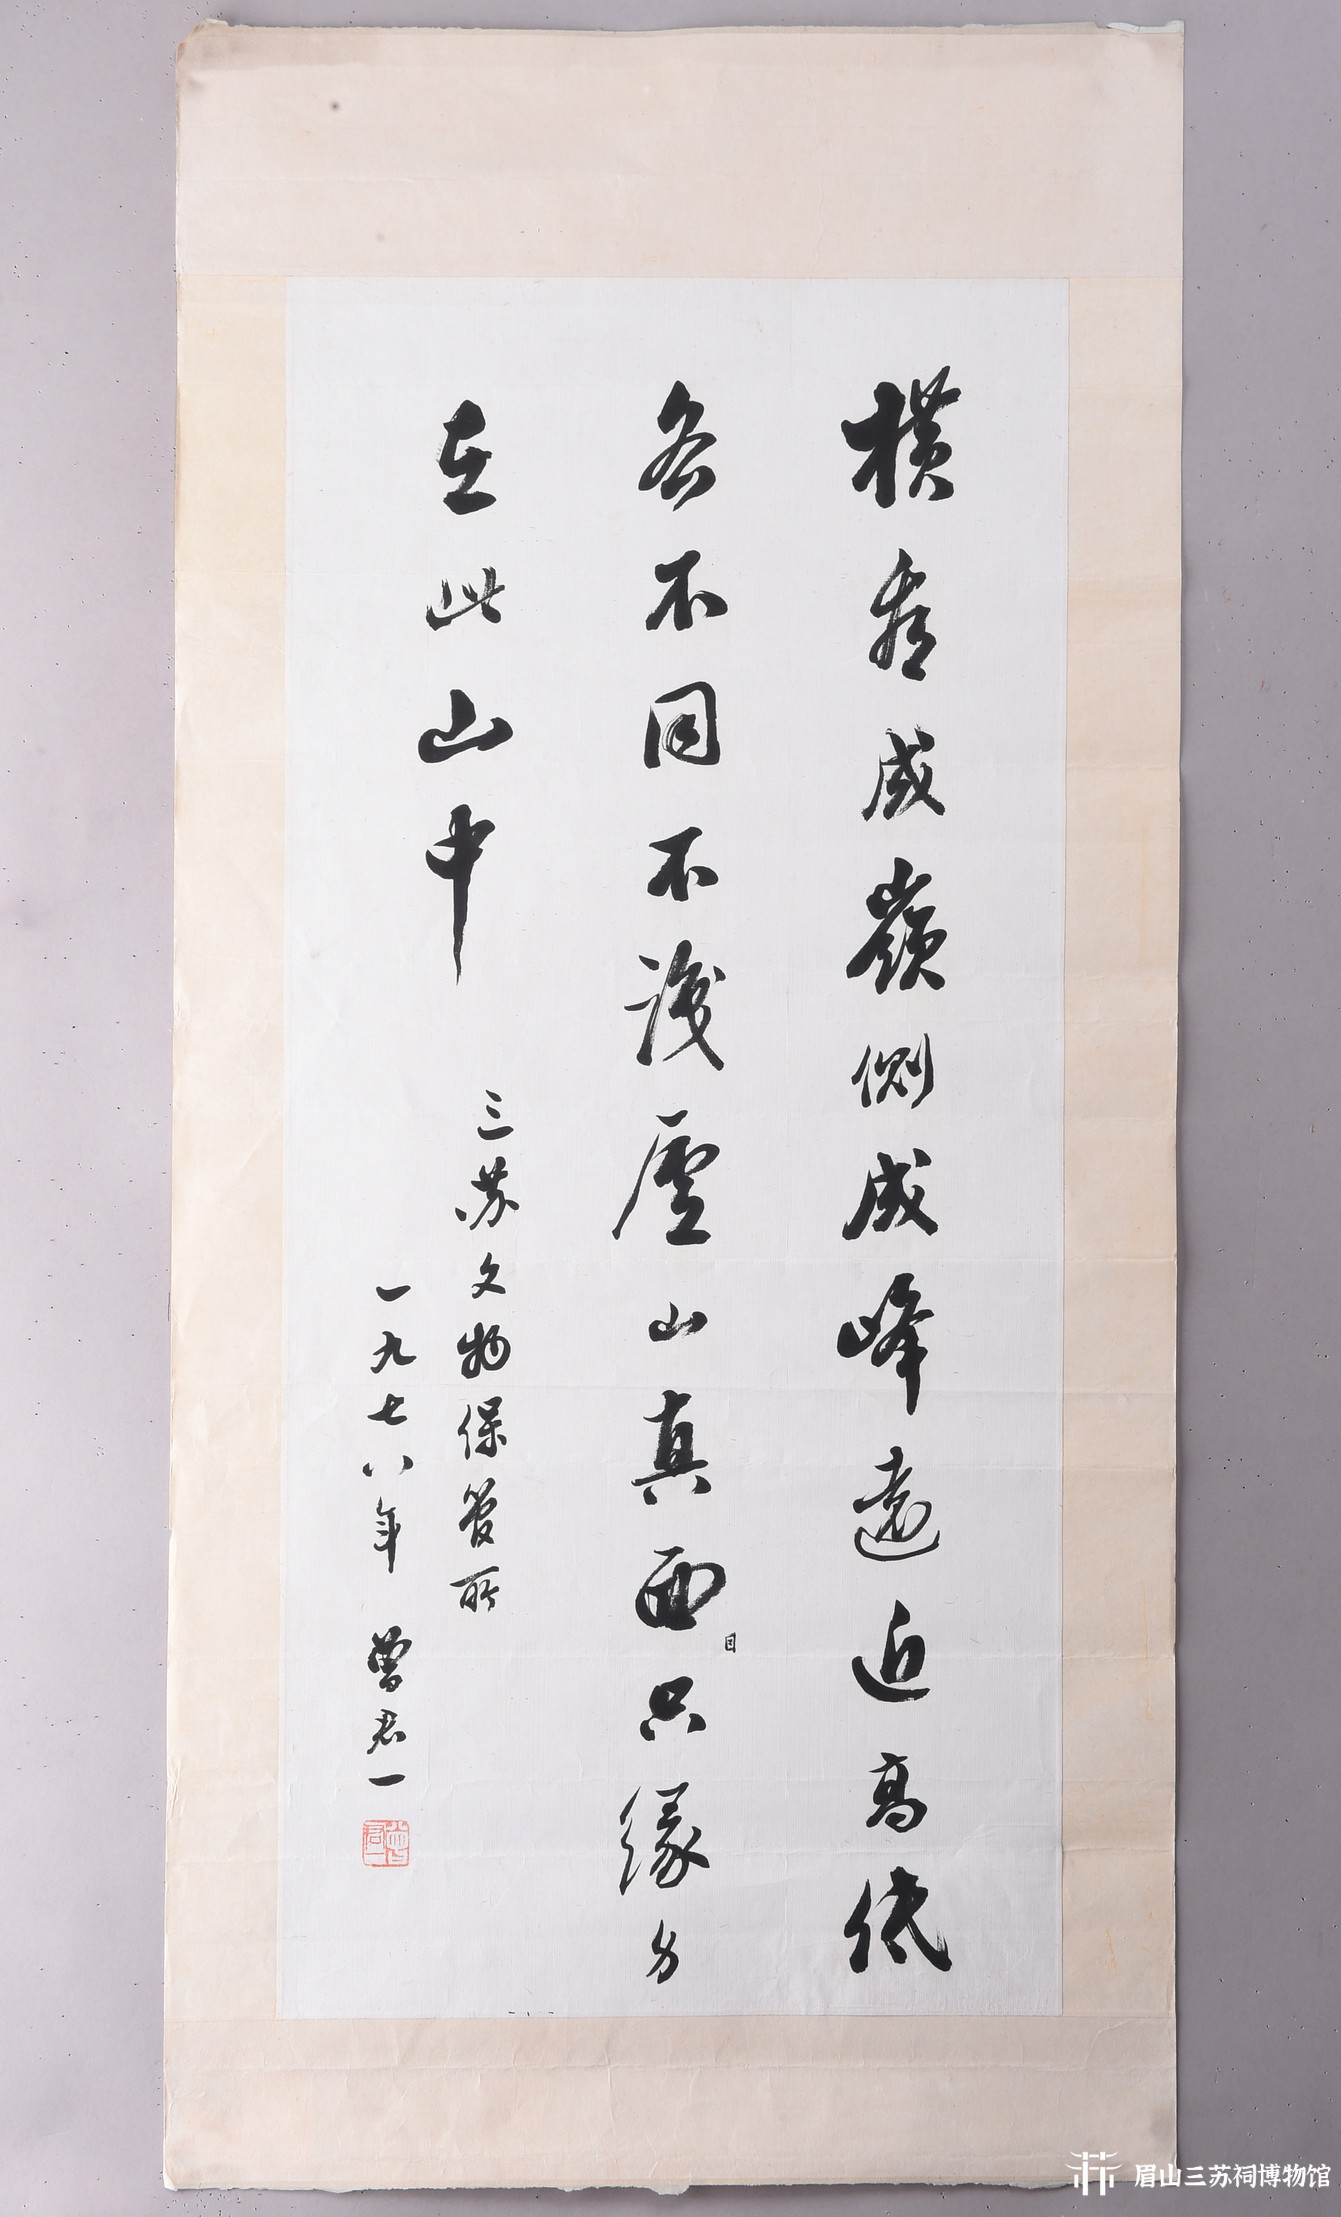 横看成嶺側成峰遠近高低
各不同不識廬山真面目只緣身
在此山中
三苏文物保管所
一九七八年 曾君一
曾君一
眉山三苏祠博物馆